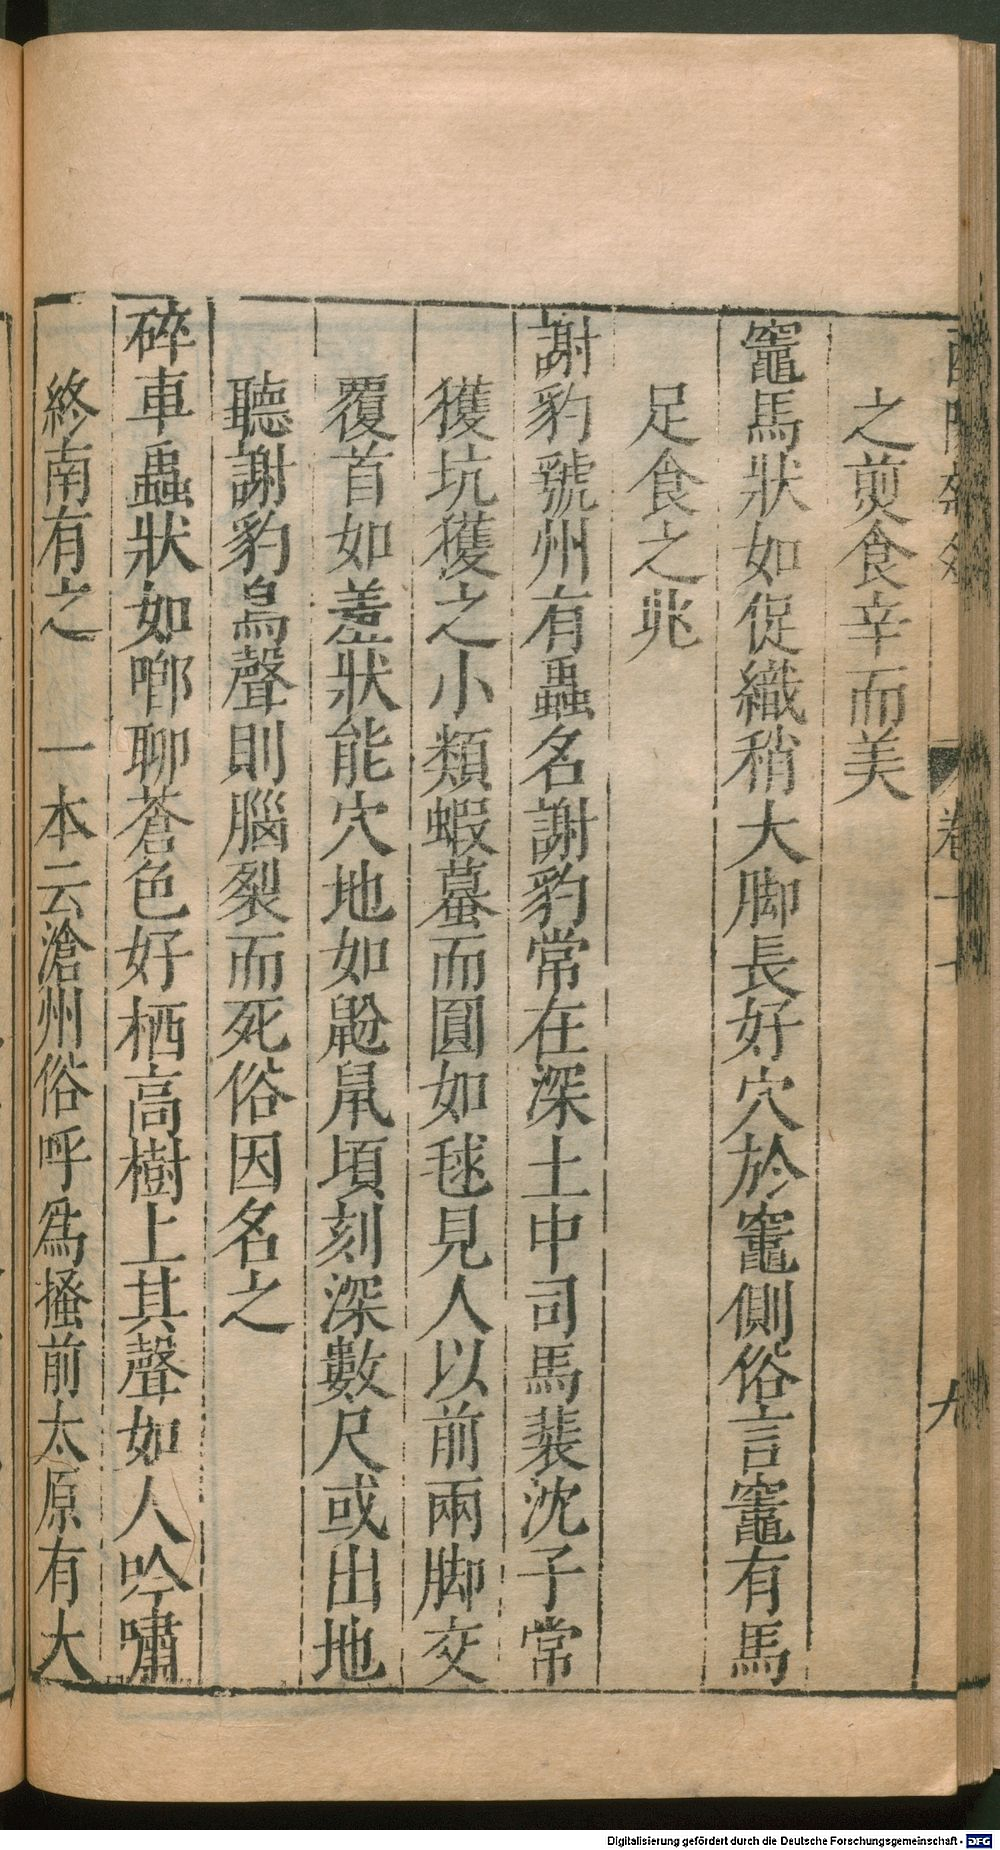 之煎食辛而美
竈馬狀如促織稍大脚長好穴於竈側俗言竈有馬
足食之兆
謝豹虢州有蟲名謝豹常在深土中司馬裴沈子常
獲坑獲之小類蝦蟇而圓如毬見人以前兩脚交
覆首如羞狀能穴地如鼢鼠頃刻深數尺或出地
聽謝豹鳥聲則腦裂而死俗因名之
碎車蟲狀如唧聊蒼色好栖高樹上其聲如人吟嘯
終南有之 一本云滄州俗呼爲搔前太原有大
卷十七
九
Digitalisierung gefördert durch die Deutsche Forschungsgemeinschaft - DFG